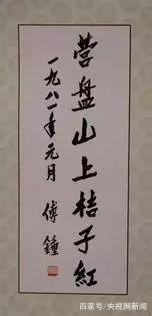 营盘山上桔子红
一九八一年元月
傅鐘
百家号/央视网新闻